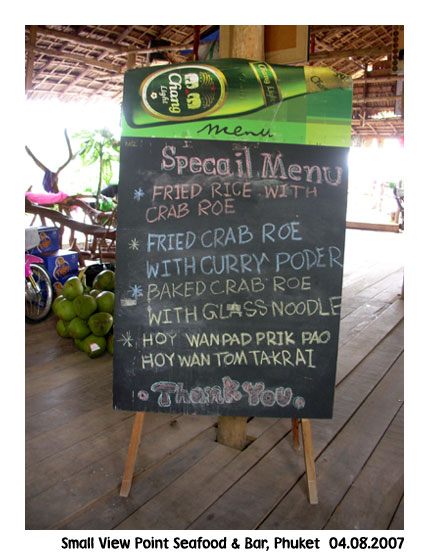 Chang
Light
Chang Light
menu
Specail Menu
* FRIED RICE WITH
CRAB ROE
* FRIED CRAB ROE
WITH CURRY PODER
* BAKED CRAB ROE
WITH GLASS NOODLE
* HOY WANPAD PRIK PAO
HOY WAN TOM TAKRAI
.Thank You.
Small View Point Seafood & Bar, Phuket 04.08.2007